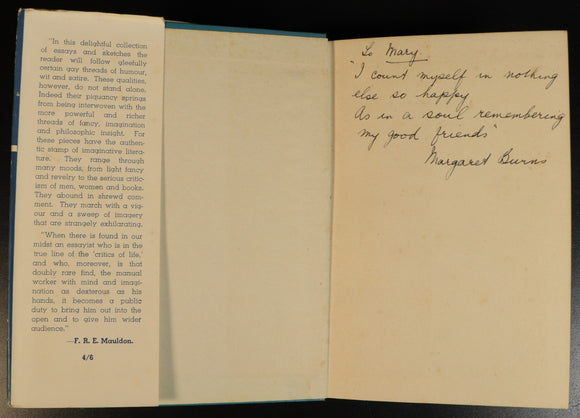 "In this delightful collection
of essays and sketches the
reader will follow gleefully
certain gay threads of humour,
wit and satire. These qualities,
however, do not stand alone.
Indeed their piquancy springs
from being interwoven with the
more powerful and richer
threads of fancy, imagination
and philosophic insight. For
these pieces have the authen-
tic stamp of imaginative litera-
ture. They range through
many moods, from light fancy
and revelry to the serious critic-
ism of men, women and books.
They abound in shrewd com-
ment. They march with a vig-
our and a sweep of imagery
that are strangely exhilarating.
"When there is found in our
midst an essayist who is in the
true line of the 'critics of life,'
and who, moreover, is that
doubly rare find, the manual
worker with mind and imagi-
nation as dexterous as his
hands, it becomes a public
duty to bring him out into the
open and to give him wider
audience."
—F. R. E. Mauldon.
4/6
To Mary.
"I count myself in nothing
else so happy
As in a soul remembering
my good friends"
Margaret Burns